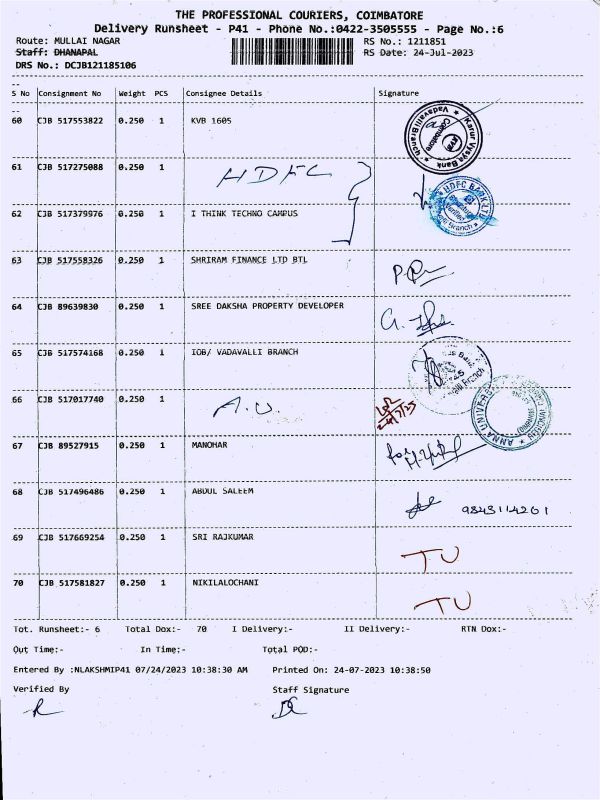 THE PROFESSIONAL COURIERS, COIMBATORE
Delivery Runsheet - P41 - Phone No.:0422-3505555 - Page No.:6
Route: MULLAI NAGAR RS No.: 1211851
Staff: DHANAPAL RS Date: 24-Jul-2023
DRS No.: DCJB121185106
S No Consignment No Weight PCS Consignee Details Signature
60 CJB 517553822 0.250 1 KVB 1605
Karur Vysya Bank Vadavalli Branch Coimbatore
61 CJB 517275088 0.250 1 HDFC
HDFC BANK LTD
62 CJB 517379976 0.250 1 I THINK TECHNO CAMPUS
63 CJB 517558326 0.250 1 SHRIRAM FINANCE LTD BTL
64 CJB 89639830 0.250 1 SREE DAKSHA PROPERTY DEVELOPER
65 CJB 517574168 0.250 1 IOB/ VADAVALLI BRANCH
66 CJB 517017740 0.250 1 A.U.
ANNA UNIVERSITY
67 CJB 89527915 0.250 1 MANOHAR
68 CJB 517496486 0.250 1 ABDUL SALEEM 9843114201
69 CJB 517669254 0.250 1 SRI RAJKUMAR TU
70 CJB 517581827 0.250 1 NIKILALOCHANI TU
Tot. Runsheet:- 6 Total Dox:- 70 I Delivery:- II Delivery:- RTN Dox:-
Out Time:- In Time:- Total POD:-
Entered By :NLAKSHMIP41 07/24/2023 10:38:30 AM Printed On: 24-07-2023 10:38:50
Verified By Staff Signature